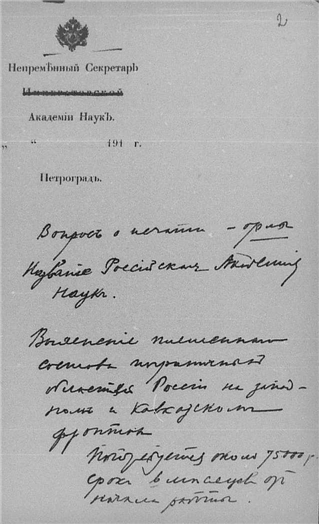 2
Непремѣнный Секретарь
Императорской
Академіи Наукъ.
„ “ 191 г.
Петроградъ.
Вопросъ о печати – орлы
Названіе Россійская Академія
Наукъ.
Выясненіе племенного
состава пограничныхъ
областей Россіи на запад-
номъ и Кавказскомъ
фронтахъ
Потребуется около 75000 р.
срокъ 6 мѣсяцевъ отъ
начала работы.